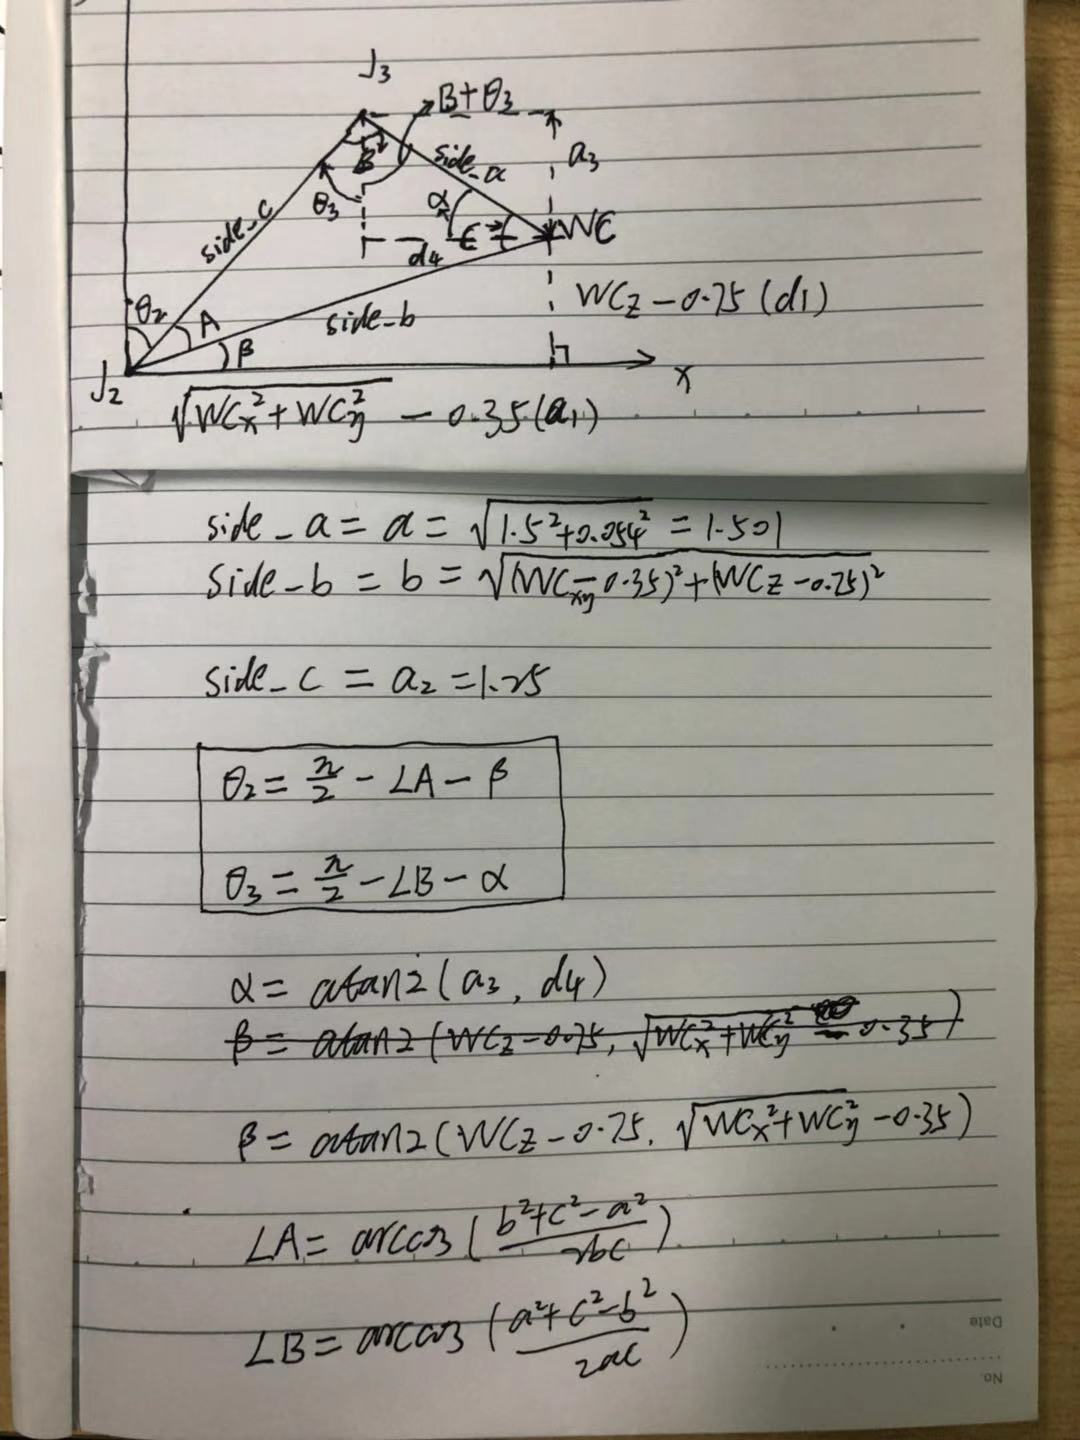 J₃
B+θ₃
B
side_a
a₃
θ₃
α
side_c
C
WC
d₄
θ₂
A
side_b
WCz − 0.75 (d₁)
β
J₂
x
√(WCx² + WCy²) − 0.35 (a₁)
side_a = a = √(1.5² + 0.054²) = 1.501
side_b = b = √((WCxy − 0.35)² + (WCz − 0.75)²)
side_c = a₂ = 1.25
θ₂ = π/2 − ∠A − β
θ₃ = π/2 − ∠B − α
α = atan2(a₃, d₄)
β = atan2(WCz − 0.75, √(WCx² + WCy²) − 0.35)
β = atan2(WCz − 0.75, √(WCx² + WCy²) − 0.35)
∠A = arccos((b² + c² − a²)/2bc)
∠B = arccos((a² + c² − b²)/2ac)
Date
No.